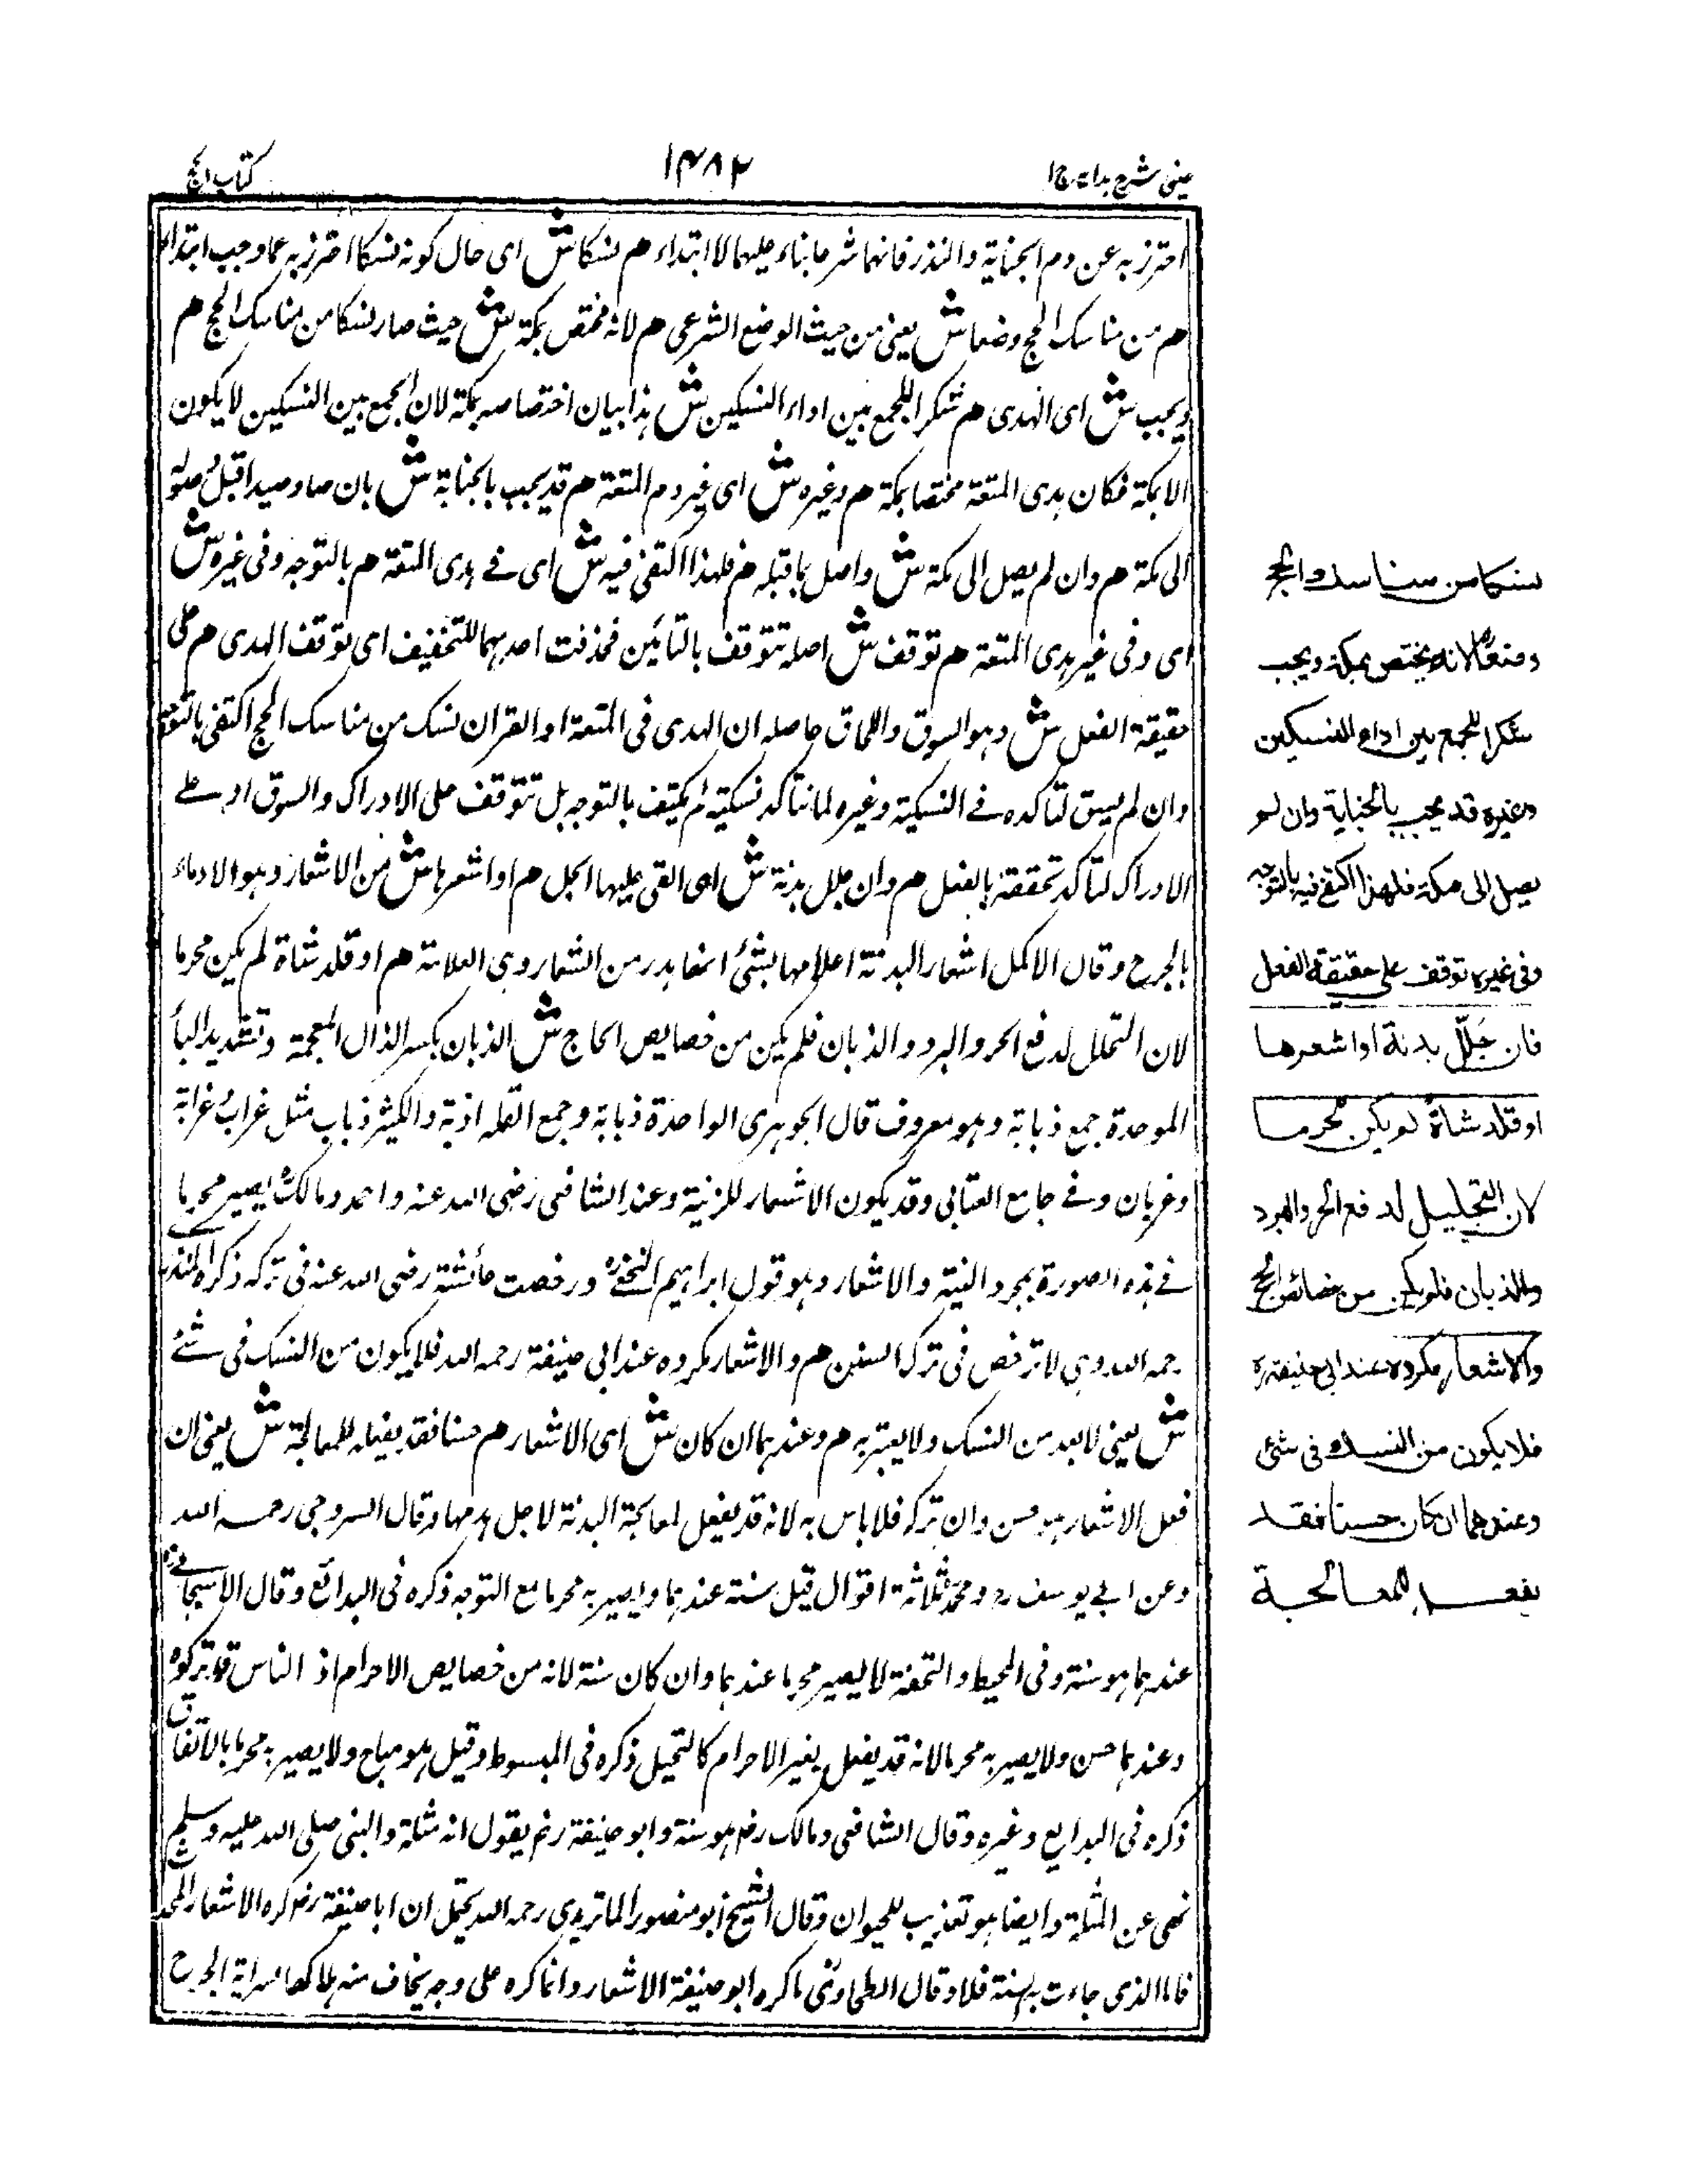 عينى شرح هدايه ج ا
١٤٨٢
كتاب الحج
احترز به عن دم الجناية والنذر فانهما شرعا بناء عليهما لا ابتداء هم نسكا ش اى حال كونه نسكا احترز به عما وجب ابتداء
هم من مناسك الحج وضعا ش يعنى من حيث الوضع الشرعى هم لانه مختص بمكة ش حيث صار نسكا من مناسك الحج هم
ويجب ش اى الهدى هم شكرا للجمع بين اداء النسكين ش هذا بيان اختصاصه بمكة لان الجمع بين النسكين لا يكون
الا بمكة فكان هدى المتعة مختصا بمكة هم وغيره ش اى غير دم المتعة هم قد يجب بالجناية ش بان صاد صيدا قبل وصوله
الى مكة هم وان لم يصل الى مكة ش واصل بما قبله هم فلهذا اكتفى فيه ش اى فى هدى المتعة هم بالتوجه وفى غيره ش
اى وفى غير هدى المتعة هم توقف ش اصله تتوقف بالتائين فحذفت احديهما للتخفيف اى توقف الهدى هم على
حقيقة الفعل ش وهو السوق واللحاق حاصله ان الهدى فى المتعة او القران نسك من مناسك الحج اكتفى بالتوجه
وان لم يسق لتاكده فى النسكية وغيره لما نتاكد نسكيته لم يكتف بالتوجه بل تتوقف على الادراك والسوق او على
الادراك لتاكد تحققه بالفعل هم وان جلل بدنة ش اى القى عليها الجل هم او اشعرها ش من الاشعار وهو الادماء
بالجرح وقال الاكمل اشعار البدنة اعلامها بشئ انها بدر من الشعار وهى العلامة هم او قلد شاة لم يكن محرما
لان التجلل لدفع الحر والبرد والذبان فلم يكن من خصايص الحاج ش الذبان بكسر الذال المعجمة وتشديد البأ
الموحدة جمع ذبابة وهو معروف قال الجوهرى الواحدة ذبابة وجمع القلة اذبة والكثير ذباب مثل غراب غرابة
وغربان وفى جامع العتابى وقد يكون الاشعار للزنية وعند الشافعى رضى الله عنه واحمد ومالك يصير محرما
فى هذه الصورة بمجرد النية والاشعار وهو قول ابراهيم النخعى ورخصت عائشة رضى الله عنه فى تركه ذكره المنذرى
رحمه الله وهى لا ترخص فى ترك السنن هم والاشعار مكروه عند ابى حنيفة رحمه الله فلا يكون من النسك فى شئ
ش يعنى لا يعد من النسك ولا يعتبر به هم وعندهما ان كان ش اى الاشعار هم حسنا فقد يفعل للمعالجة ش يعنى ان
فعل الاشعار هو حسن وان تركه فلا باس به لانه قد يفعل لمعالجة البدنة لاجل مها وقال السروجى رحمه الله
وعن ابى يوسف ره ومحمد ثلاثة اقوال قيل سنة عندهما ويصير به محرما مع التوجه ذكره فى البدائع وقال الاسبيجابى
عندهما هو سنة وفى المحيط والتحفة لا يصير محرما عندهما وان كان سنة لانه من خصايص الاحرام اذ الناس قد تركوه
وعندهما حسن ولا يصير به محرما لانه قد يفعل بغير الاحرام كالتجليل ذكره فى المبسوط وقيل هو مباح ولا يصير به محرما بالاتفاق
ذكره فى البدايع وغيره وقال الشافعى ومالك رض هو سنة وابو حنيفة رض يقول انه مثلة والنبى صلى الله عليه وسلم
نهى عن المثلة وايضا هو تعذيب للحيوان وقال الشيخ ابو منصور الماتريدى رحمه الله يحتمل ان ابا حنيفة رض كره الاشعار المحدث
فاما الذى جاءت به السنة فلا وقال الطحاوى ما كره ابو حنيفة الاشعار وانما كره على وجه يخاف منه هلاكها لسراية الجرح
نسكا من مناسك الحج
وضعا لانه يختص بمكة ويجب
شكرا للجمع بين اداء النسكين
وغيره قد يجب بالجناية وان لم
يصل الى مكة فلهذا اكتفى فيه بالتوجه
وفى غيره توقف على حقيقة الفعل
فان جلّل بدنة او اشعرها
او قلد شاة لم يكن محرما
لان التجليل لدفع الحر والبرد
والذبان فلم يكن من خصائص الحج
والاشعار مكروه عند ابى حنيفة ره
فلا يكون من النسك فى شئ
وعندهما ان كان حسنا فقد
يفعل للمعالجة